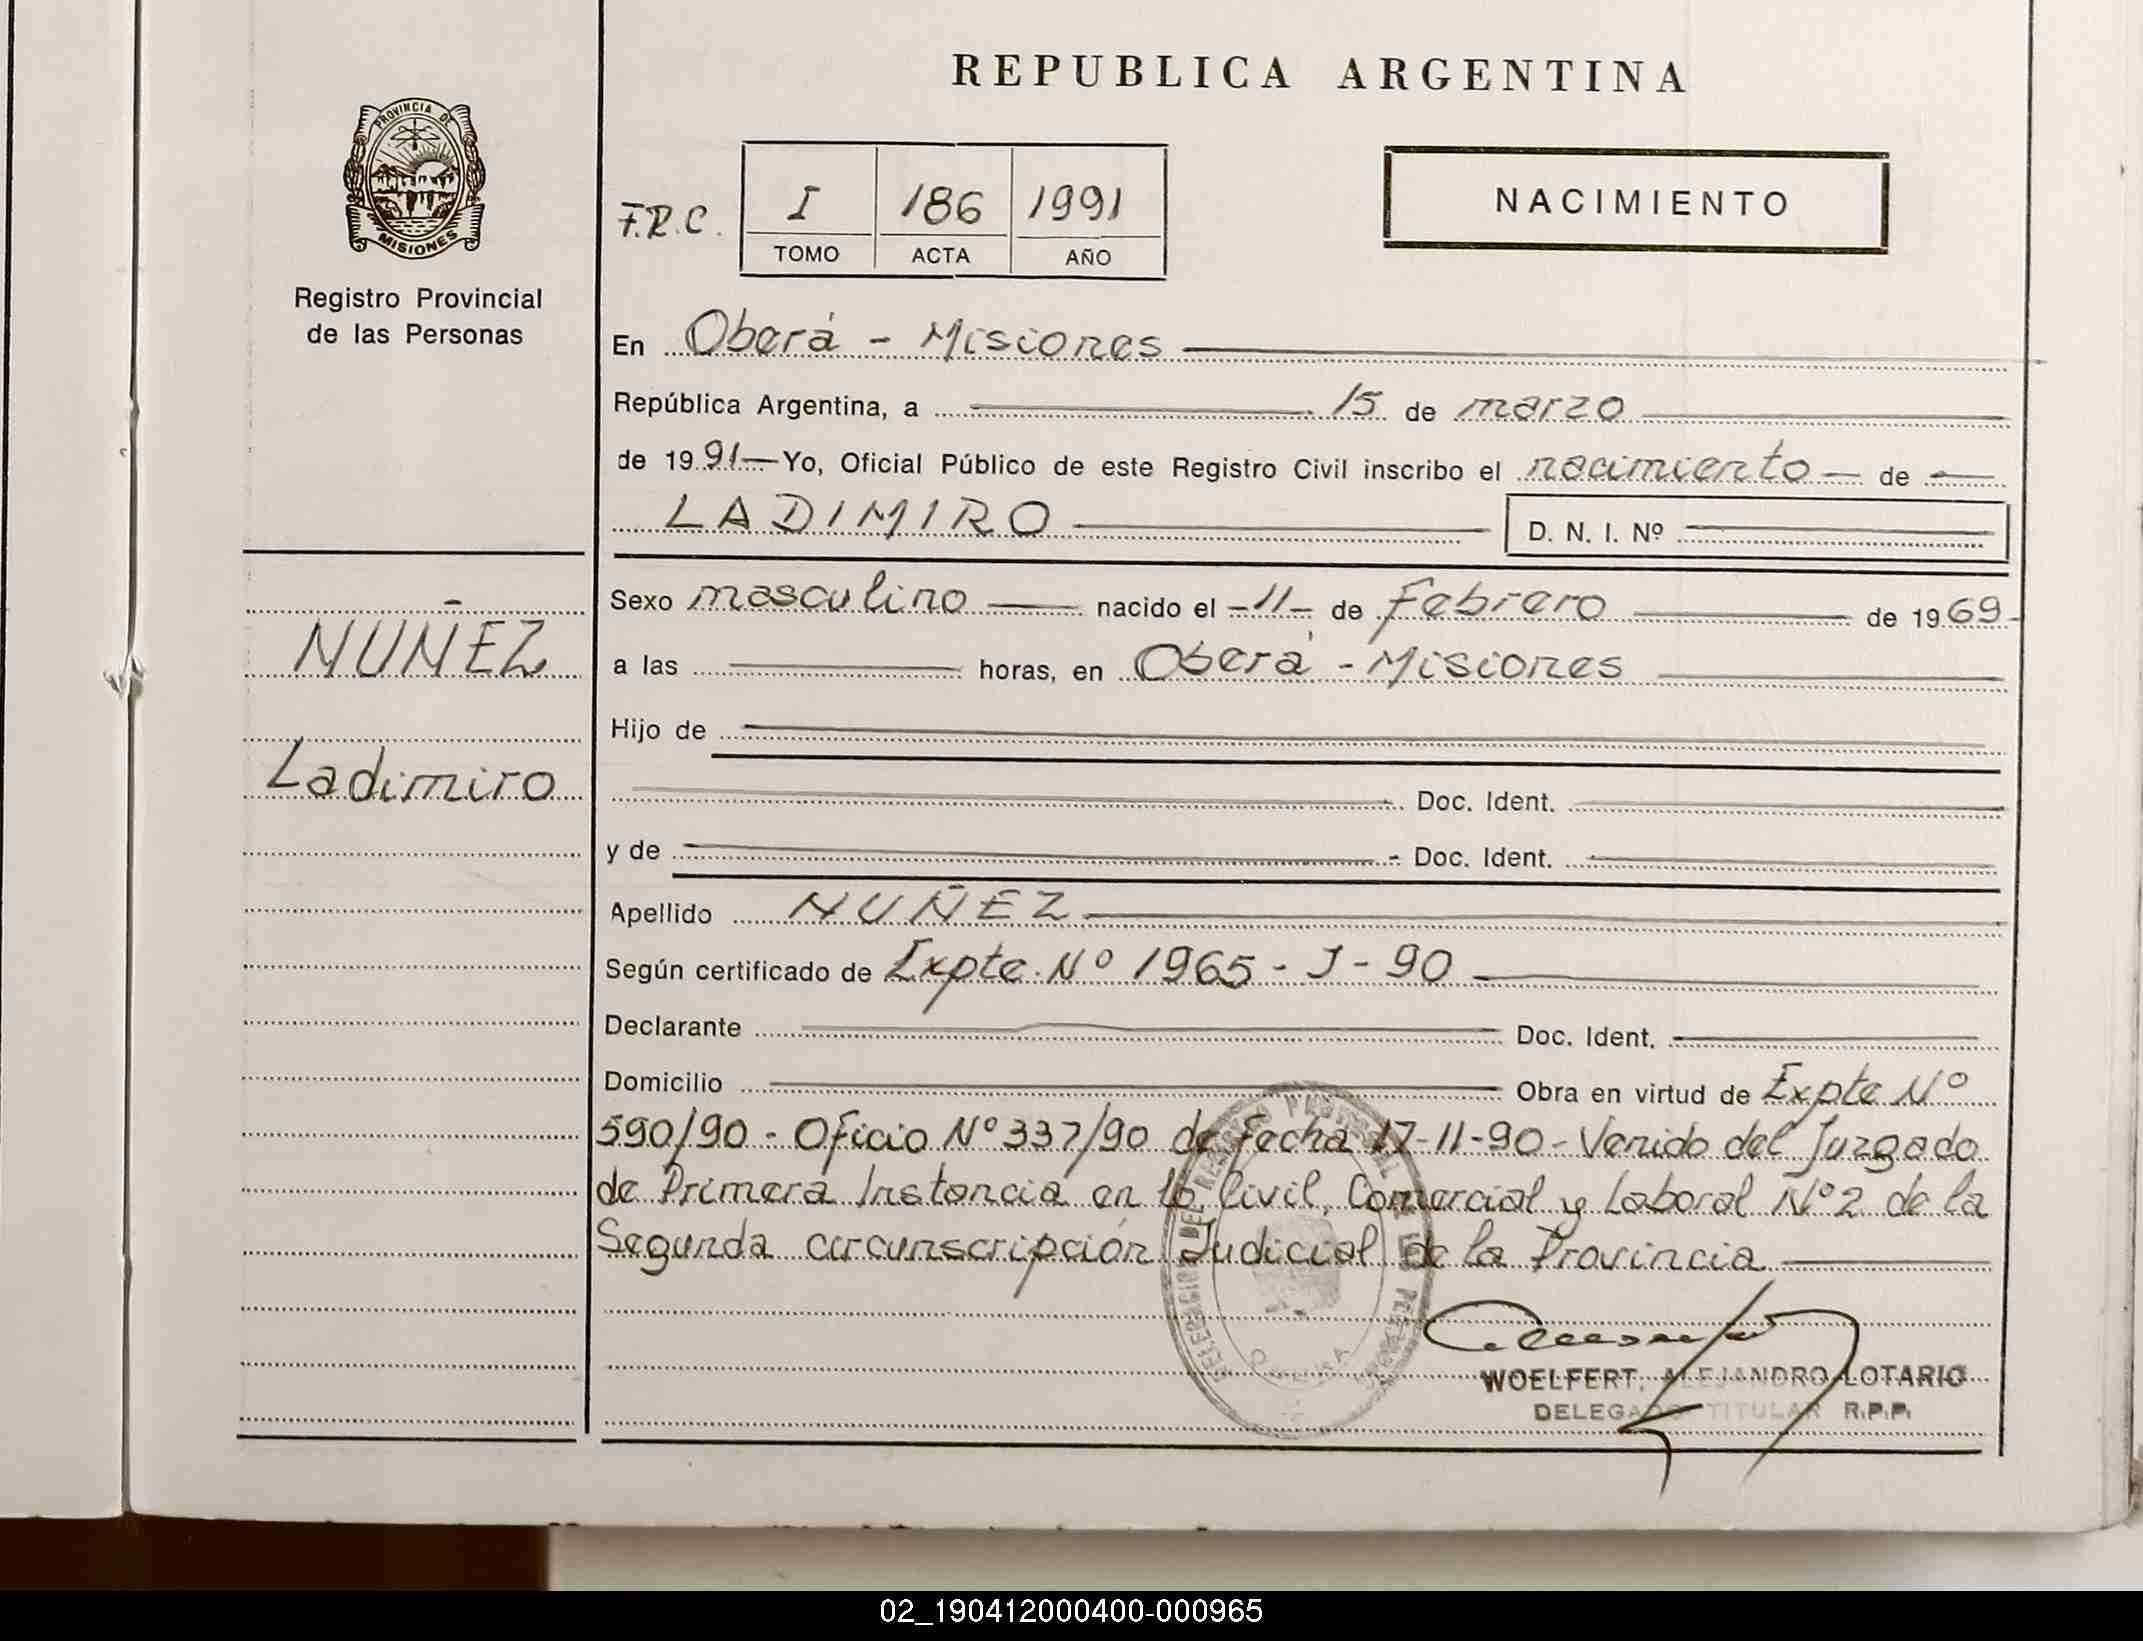 REPUBLICA ARGENTINA
PROVINCIA DE
MISIONES
Registro Provincial
de las Personas
F.R.C.
I 186 1991
TOMO ACTA AÑO
NACIMIENTO
En Oberá - Misiones
República Argentina, a 15 de marzo
de 1991 Yo, Oficial Público de este Registro Civil inscribo el nacimiento de
LADIMIRO D. N. I. Nº
NUÑEZ
Ladimiro
Sexo masculino nacido el -11- de Febrero de 1969
a las horas, en Oberá - Misiones
Hijo de
Doc. Ident.
y de Doc. Ident.
Apellido NUÑEZ
Según certificado de Expte. Nº 1965 - J - 90
Declarante Doc. Ident.
Domicilio Obra en virtud de Expte Nº
590/90 - Oficio Nº 337/90 de fecha 17-11-90 - Venido del Juzgado
de Primera Instancia en lo Civil, Comercial y Laboral Nº 2 de la
Segunda circunscripción Judicial de la Provincia
WOELFERT, ALEJANDRO LOTARIO
DELEGADO TITULAR R.P.P.
02_190412000400-000965